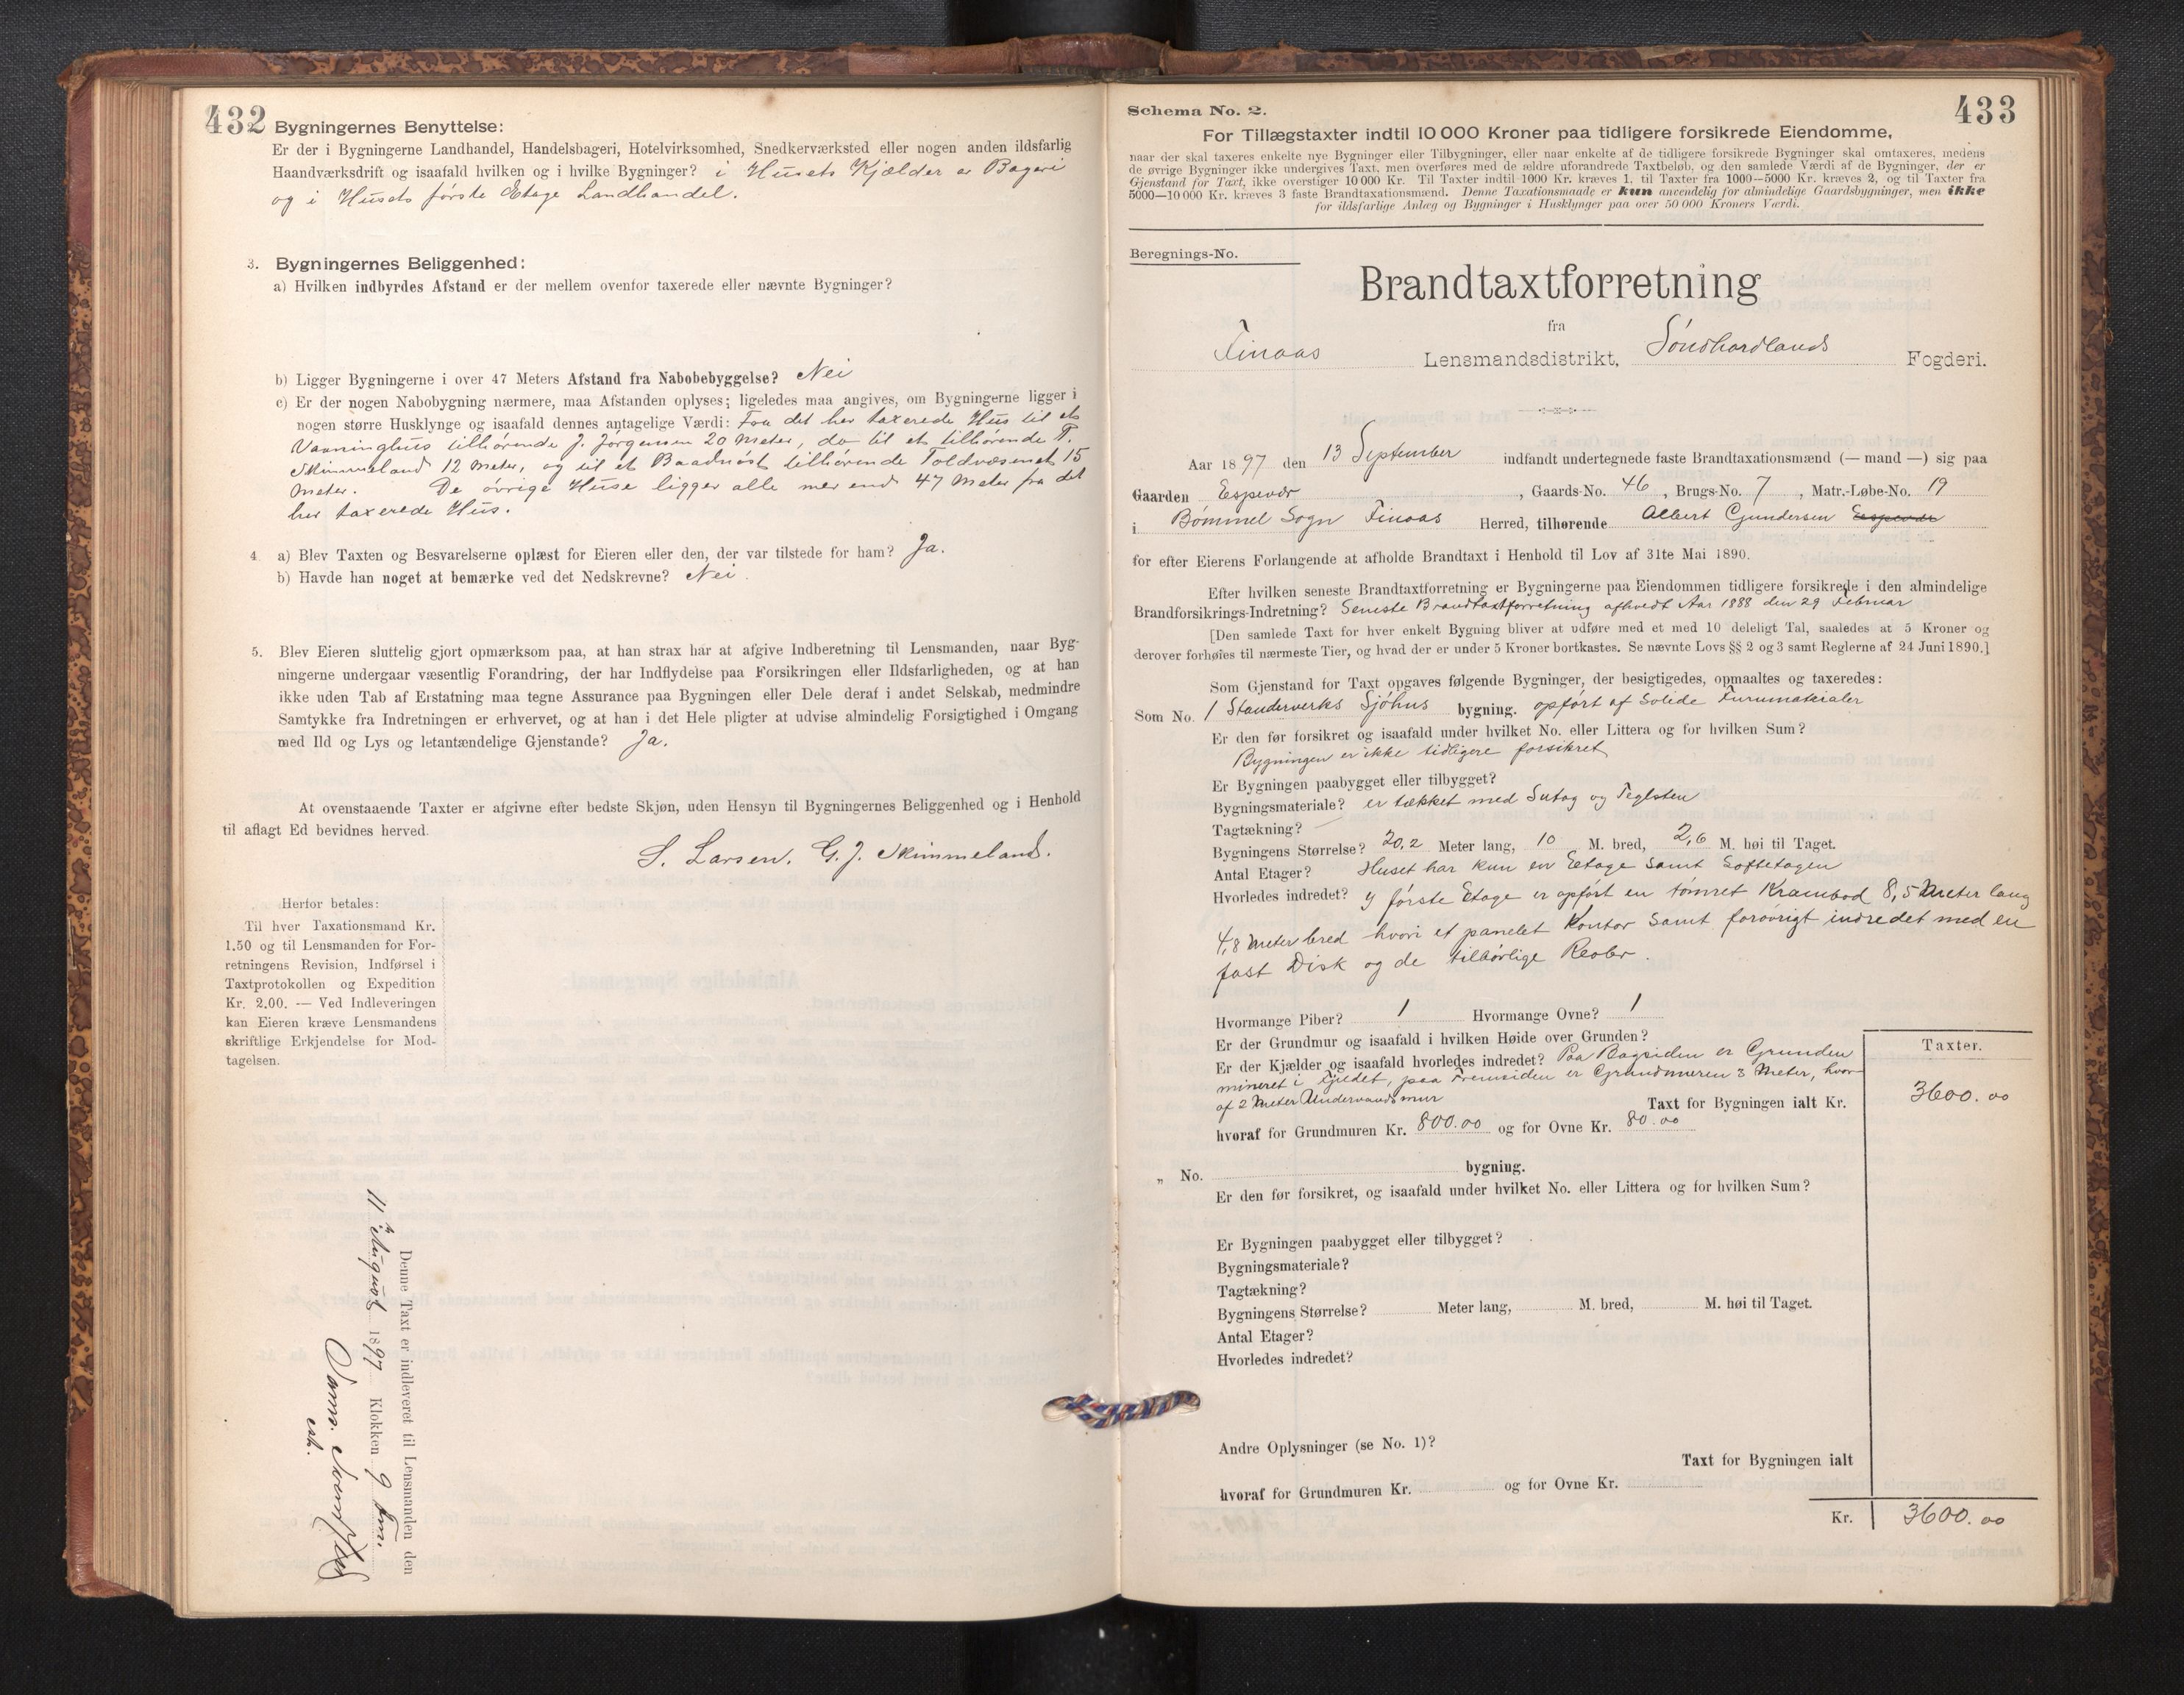 432
Bygningernes Benyttelse:
Er der i Bygningerne Landhandel, Handelsbageri, Hotelvirksomhed, Snedkerværksted eller nogen anden ildsfarlig
Haandværksdrift og isaafald hvilken og i hvilke Bygninger? i Husets Kjælder er Bageri
og i Husets første Etage Landhandel.
3. Bygningernes Beliggenhed:
a) Hvilken indbyrdes Afstand er der mellem ovenfor taxerede eller nævnte Bygninger?
b) Ligger Bygningerne i over 47 Meters Afstand fra Nabobebyggelse? Nei
c) Er der nogen Nabobygning nærmere, maa Afstanden oplyses; ligeledes maa angives, om Bygningerne ligger i
nogen større Husklynge og isaafald dennes antagelige Værdi: Fra det her taxerede Hus til et
Vaaninghus tilhørende J. Jørgensen 20 Meter, do til et tilhørende T.
Skimmeland 12 Meter, og til et Baadnøst tilhørende Toldvæsenet 15
Meter. De øvrige Huse ligger alle mer end 47 Meter fra det
her taxerede Hus.
4 a) Blev Taxten og Besvarelserne oplæst for Eieren eller den, der var tilstede for ham? Ja.
b) Havde han noget at bemærke ved det Nedskrevne? Nei.
5. Blev Eieren sluttelig gjort opmærksom paa, at han strax har at afgive Indberetning til Lensmanden, naar Byg-
ningerne undergaar væsentlig Forandring, der har Indflydelse paa Forsikringen eller Ildsfarligheden, og at han
ikke uden Tab af Erstatning maa tegne Assurance paa Bygningen eller Dele deraf i andet Selskab, medmindre
Samtykke fra Indretningen er erhvervet, og at han i det Hele pligter at udvise almindelig Forsigtighed i Omgang
med Ild og Lys og letantændelige Gjenstande? Ja.
At ovenstaaende Taxter er afgivne efter bedste Skjøn, uden Hensyn til Bygningernes Beliggenhed og i Henhold
til aflagt Ed bevidnes herved.
S. Larsen. G. J. Skimmeland.
Herfor betales:
Til hver Taxationsmand Kr.
1.50 og til Lensmanden for For-
retningens Revision, Indførsel i
Taxtprotokollen og Expedition
Kr. 2.00. — Ved Indleveringen
kan Eieren kræve Lensmandens
skriftlige Erkjendelse for Mod-
tagelsen.
Denne Taxt er indleveret til Lensmanden den
11 August 1897 Klokken 9 Fm.
433
Schema No. 2.
For Tillægstaxter indtil 10 000 Kroner paa tidligere forsikrede Eiendomme,
naar der skal taxeres enkelte nye Bygninger eller Tilbygninger, eller naar enkelte af de tidligere forsikrede Bygninger skal omtaxeres, medens
de øvrige Bygninger ikke undergives Taxt, men overføres med de ældre uforandrede Taxtbeløb, og den samlede Værdi af de Bygninger, der er
Gjenstand for Taxt, ikke overstiger 10 000 Kr. Til Taxter indtil 1000 Kr. kræves 1, til Taxter fra 1000—5000 Kr. kræves 2, og til Taxter fra
5000—10 000 Kr. kræves 3 faste Brandtaxationsmænd. Denne Taxationsmaade er kun anvendelig for almindelige Gaardsbygninger, men ikke
for ildsfarlige Anlæg og Bygninger i Husklynger paa over 50 000 Kroners Værdi.
Beregnings-No.
Brandtaxtforretning
fra
Finaas Lensmandsdistrikt, Søndhordlands Fogderi.
Aar 1897 den 13 September indfandt undertegnede faste Brandtaxationsmænd (— mand —) sig paa
Gaarden Espevær, Gaards-No. 46, Brugs-No. 7, Matr.-Løbe-No. 19
i Bømmel Sogn Finaas Herred, tilhørende Albert Gundersen Espevær
for efter Eierens Forlangende at afholde Brandtaxt i Henhold til Lov af 31te Mai 1890.
Efter hvilken seneste Brandtaxtforretning er Bygningerne paa Eiendommen tidligere forsikrede i den almindelige
Brandforsikrings-Indretning? Seneste Brandtaxtforretning afholdt Aar 1888 den 29 Februar
[Den samlede Taxt for hver enkelt Bygning bliver at udføre med et med 10 deleligt Tal, saaledes at 5 Kroner og
derover forhøies til nærmeste Tier, og hvad der er under 5 Kroner bortkastes. Se nævnte Lovs §§ 2 og 3 samt Reglerne af 24 Juni 1890.]
Som Gjenstand for Taxt opgaves følgende Bygninger, der besigtigedes, opmaaltes og taxeredes:
Som No. 1 Standerverks Sjøhus bygning. opført af Solide Furumaterialer
Er den før forsikret og isaafald under hvilket No. eller Littera og for hvilken Sum?
Bygningen er ikke tidligere forsikret
Er Bygningen paabygget eller tilbygget?
Bygningsmateriale? er tækket med Sutag og Teglsten
Tagtækning?
Bygningens Størrelse? 20,2 Meter lang, 10 M. bred, 2,6 M. høi til Taget.
Antal Etager? Huset har kun en Etage samt Loftetagen
Hvorledes indredet? I første Etage er opført en tømret Krambod 8,5 Meter lang
4,8 Meter bred hvori et panelet Kontor samt forøvrigt indredet med en
fast Disk og de tilhørlige Reoler.
Hvormange Piber? 1 Hvormange Ovne? 1
Er der Grundmur og isaafald i hvilken Høide over Grunden?
Er der Kjælder og isaafald hvorledes indredet? Paa Bagsiden er Grunden
mineret i Fjeldet, paa Fremsiden er Grundmuren 3 Meter, hvor-
af 2 Meter Undervandsmur
Taxt for Bygningen ialt Kr.
Taxter.
3600.00
hvoraf for Grundmuren Kr. 800.00 og for Ovne Kr. 80.00
„ No. bygning.
Er den før forsikret, og isaafald under hvilket No. eller Littera og for hvilken Sum?
Er Bygningen paabygget eller tilbygget?
Bygningsmateriale?
Tagtækning?
Bygningens Størrelse? Meter lang, M. bred, M. høi til Taget.
Antal Etager?
Hvorledes indredet?
Andre Oplysninger (se No. 1)?
Taxt for Bygningen ialt
hvoraf for Grundmuren Kr. og for Ovne Kr.
Kr. 3600.00